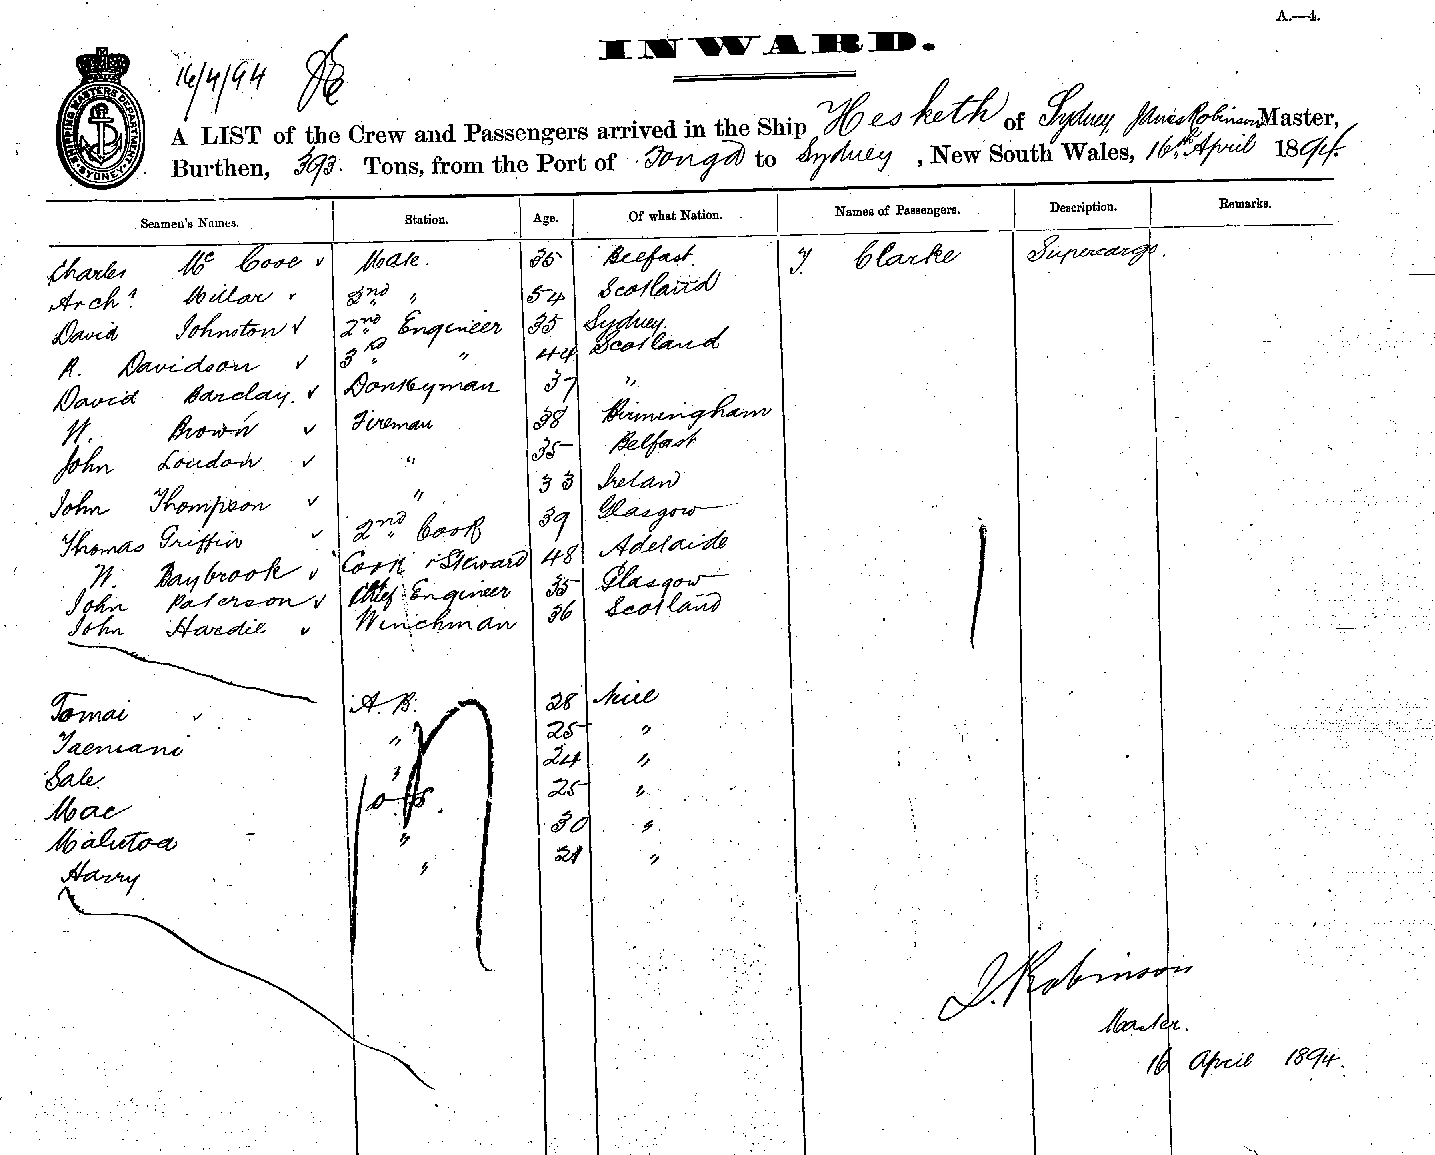 A.—4.
INWARD.
16/4/94
SHIPPING MASTERS DEPARTMENT SYDNEY
A LIST of the Crew and Passengers arrived in the Ship Hesketh of Sydney, James Robinson Master,
Burthen, 393. Tons, from the Port of Tonga to Sydney, New South Wales, 16th April 1894.
Seamen's Names. Station. Age. Of what Nation. Names of Passengers. Description. Remarks.
Charles Mc Cove Mate. 35 Belfast J. Clarke Supercargo.
Archd. Millar 2nd " 54 Scotland
David Johnston 2nd Engineer 35 Sydney
R. Davidson 3rd " 44 Scotland
David Barclay. Donkeyman 37 "
W. Brown Fireman 38 Birmingham
John Loudon " 35 Belfast
John Thompson " 33 Irelan
Thomas Griffin 2nd Cook 39 Glasgow
W. Baybrook Cook & Steward 48 Adelaide
John Paterson Chief Engineer 35 Glasgow
John Hardie Winchman 36 Scotland
Tomai A.B. 28 Niue
Taemani " 25 "
Sale " 24 "
Mae O.S. 25 "
Malutoa " 30 "
Harry " 21 "
J. Robinson
Master.
16 April 1894.